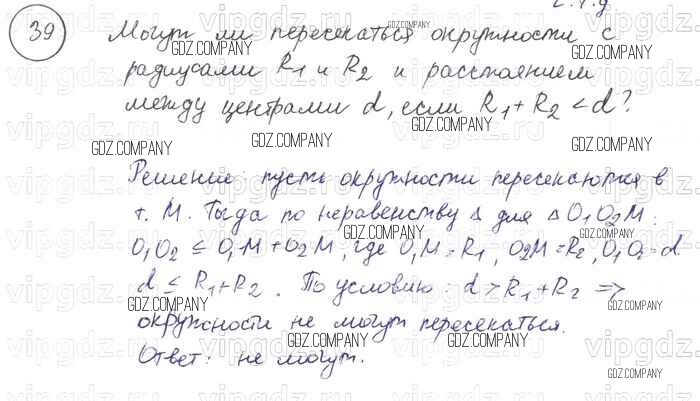 ч.т.д.
39 Могут ли пересекаться окружности с
радиусами R1 и R2 и расстоянием
между центрами d, если R1 + R2 < d?
Решение: пусть окружности пересекаются в
т. М. Тогда по неравенству Δ для Δ O1O2M:
O1O2 ≤ O1M + O2M, где O1M = R1, O2M = R2, O1O2 = d.
d ≤ R1 + R2. По условию: d > R1 + R2 =>
окружности не могут пересекаться.
Ответ: не могут.
GDZ.COMPANY
vipgdz.ru